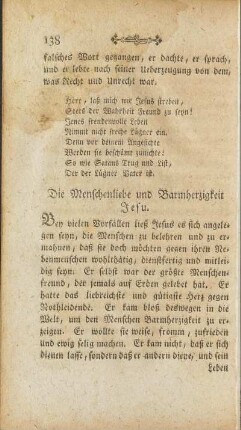 138
falsches Wort gegangen, er dachte, er sprach,
und er lebte nach seiner Ueberzeugung von dem,
was Recht und Unrecht war.
Herr, laß mich wie Jesus streben,
Stets der Wahrheit Freund zu seyn!
Jenes freudenvolle Leben
Nimmt nicht freche Lügner ein.
Denn vor deinem Angesichte
Werden sie beschämt zunichte:
So wie Satans Trug und List,
Der der Lügner Vater ist.
Die Menschenliebe und Barmherzigkeit
Jesu.
Bey vielen Vorfällen ließ Jesus es sich angele-
gen seyn, die Menschen zu belehren und zu er-
mahnen, daß sie doch möchten gegen ihren Ne-
benmenschen wohlthätig, dienstfertig und mitlei-
dig seyn. Er selbst war der größte Menschen-
freund, der jemals auf Erden gelebet hat. Er
hatte das liebreichste und gütigste Herz gegen
Nothleidende. Er kam bloß deswegen in die
Welt, um den Menschen Barmherzigkeit zu er-
zeigen. Er wollte sie weise, fromm, zufrieden
und ewig selig machen. Er kam nicht, daß er sich
dienen lasse, sondern daß er andern diene, und sein
Leben